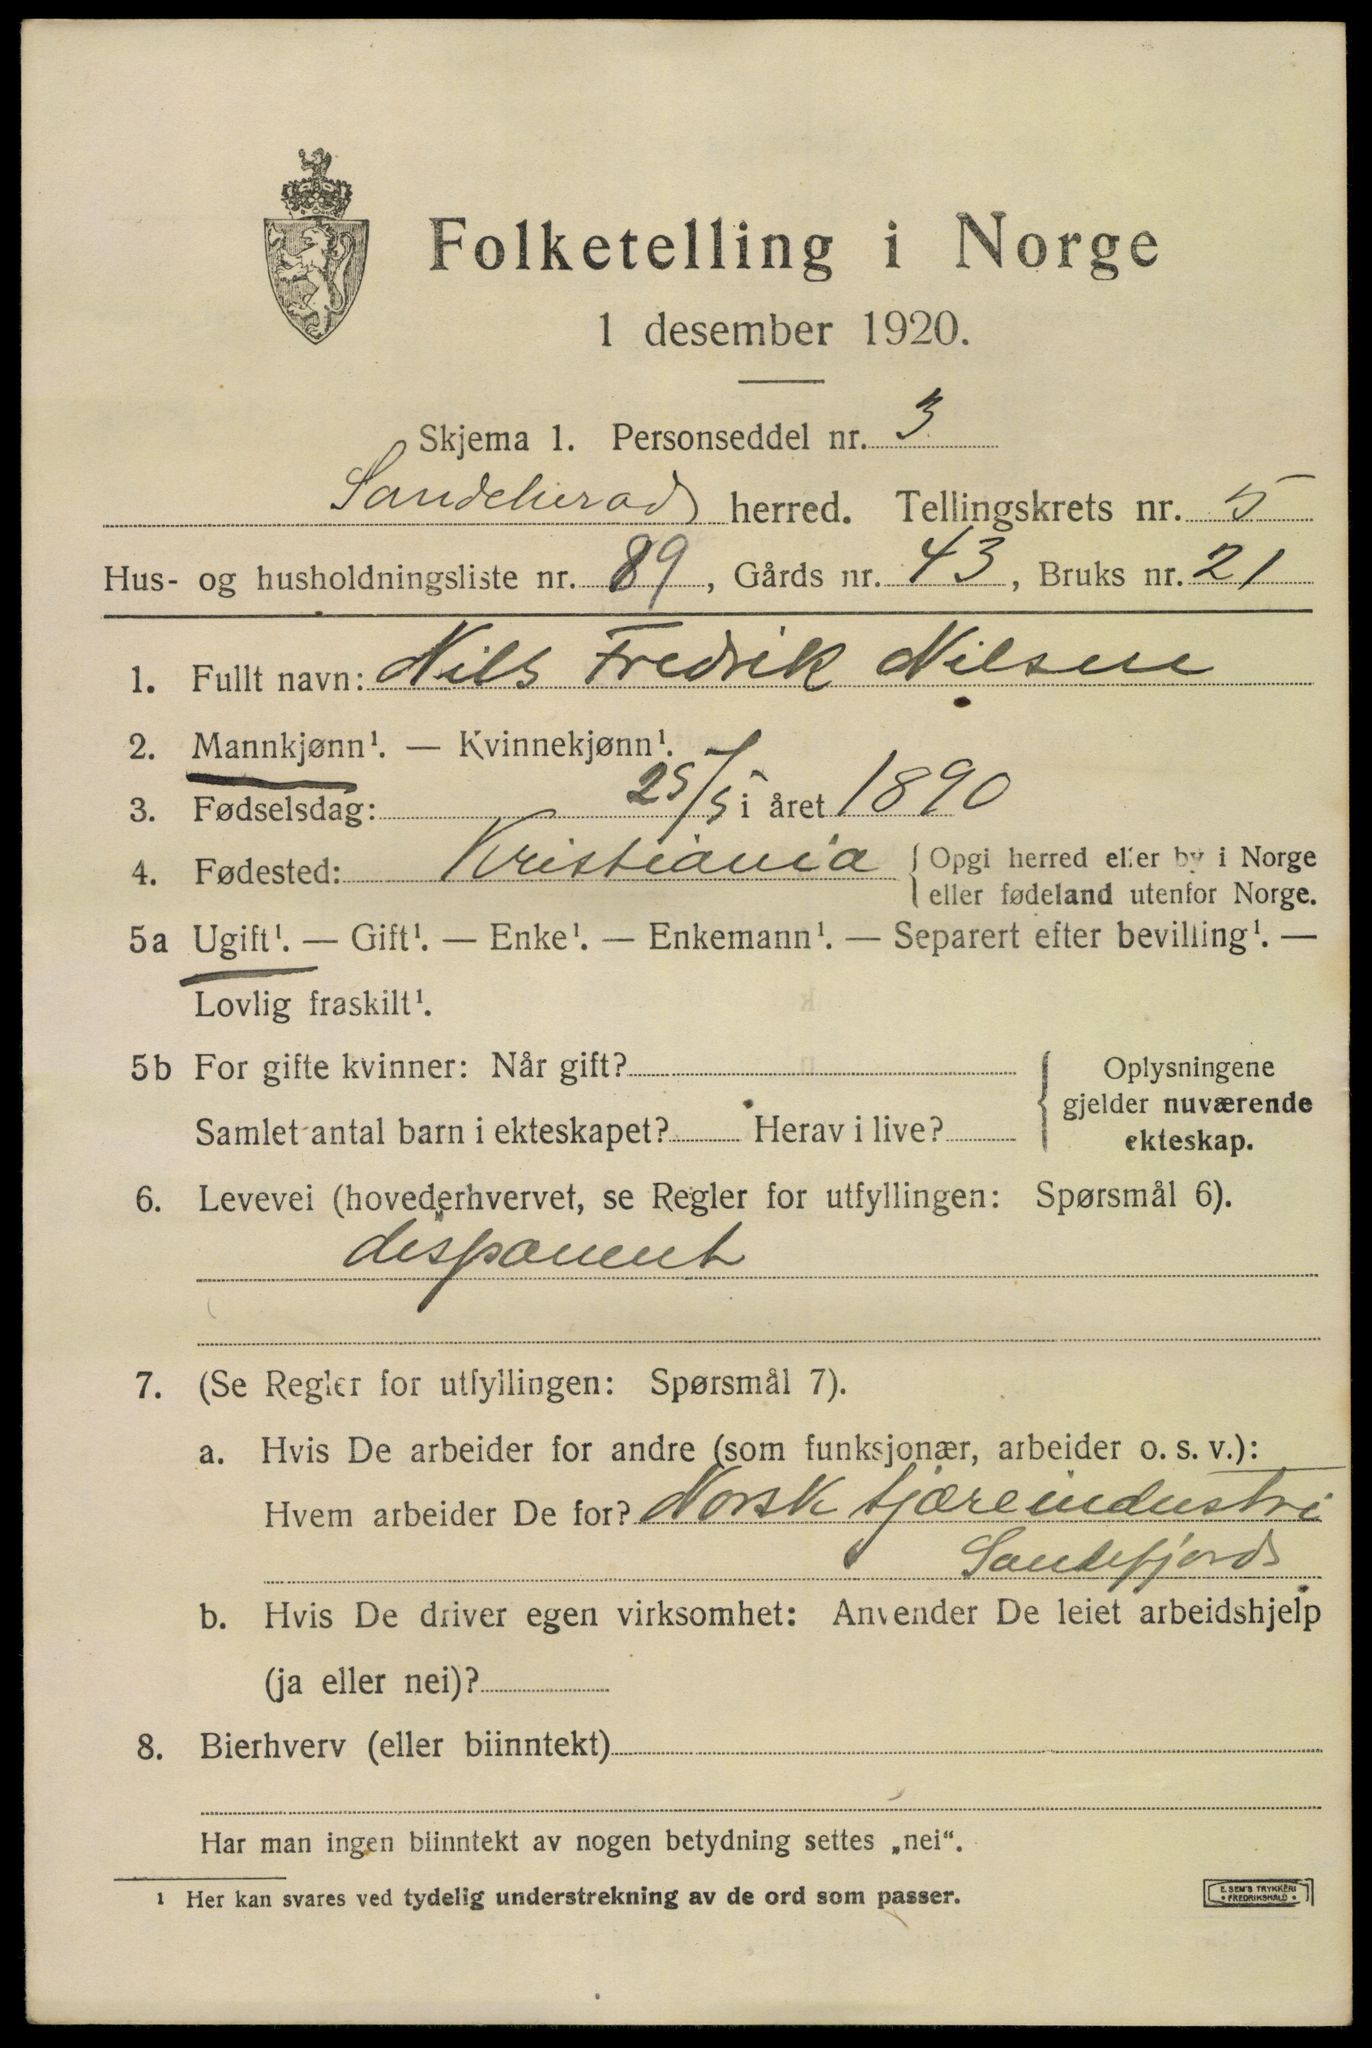 Folketelling i Norge
1 desember 1920.
Skjema 1. Personseddel nr. 3
Sandeherad herred. Tellingskrets nr. 5
Hus- og husholdningsliste nr. 89, Gårds nr. 43, Bruks nr. 21
1. Fullt navn: Nils Fredrik Nilsen
2. Mannkjønn¹. — Kvinnekjønn¹.
3. Fødselsdag: 25/5 i året 1890
4. Fødested: Kristiania { Opgi herred eller by i Norge
eller fødeland utenfor Norge.
5a Ugift¹. — Gift¹. — Enke¹. — Enkemann¹. — Separert efter bevilling¹. —
Lovlig fraskilt¹.
5b For gifte kvinner: Når gift?
Samlet antal barn i ekteskapet? Herav i live?
Oplysningene
gjelder nuværende
ekteskap.
6. Levevei (hovederhvervet, se Regler for utfyllingen: Spørsmål 6).
disponent
7. (Se Regler for utfyllingen: Spørsmål 7).
a. Hvis De arbeider for andre (som funksjonær, arbeider o. s. v.):
Hvem arbeider De for? Norsk tjæreindustri
Sandefjord
b. Hvis De driver egen virksomhet: Anvender De leiet arbeidshjelp
(ja eller nei)?
8. Bierhverv (eller biinntekt)
Har man ingen biinntekt av nogen betydning settes „nei“.
¹ Her kan svares ved tydelig understrekning av de ord som passer.
E. SEM'S TRYKKERI
• FREDRIKSHALD •